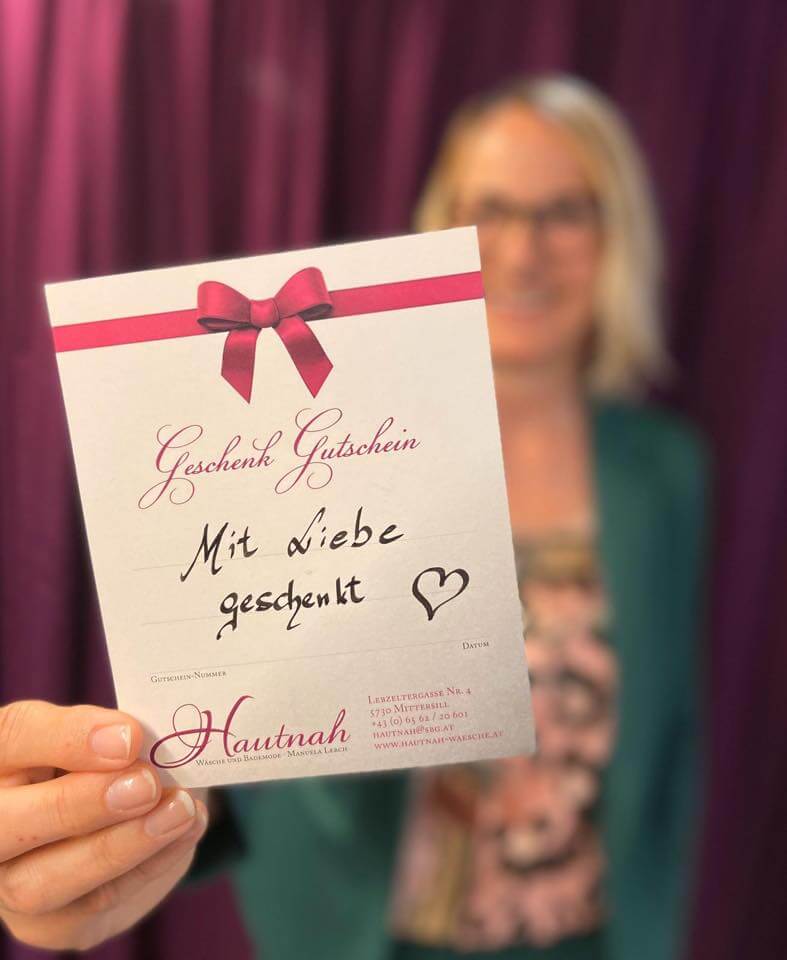 Geschenk Gutschein
Mit Liebe
geschenkt
Datum
Gutschein-Nummer
Hautnah
Wäsche und Bademode · Manuela Lerch
Lebzeltergasse Nr. 4
5730 Mittersill
+43 (0) 65 62 / 20 601
hautnah@sbg.at
www.hautnah-waesche.at